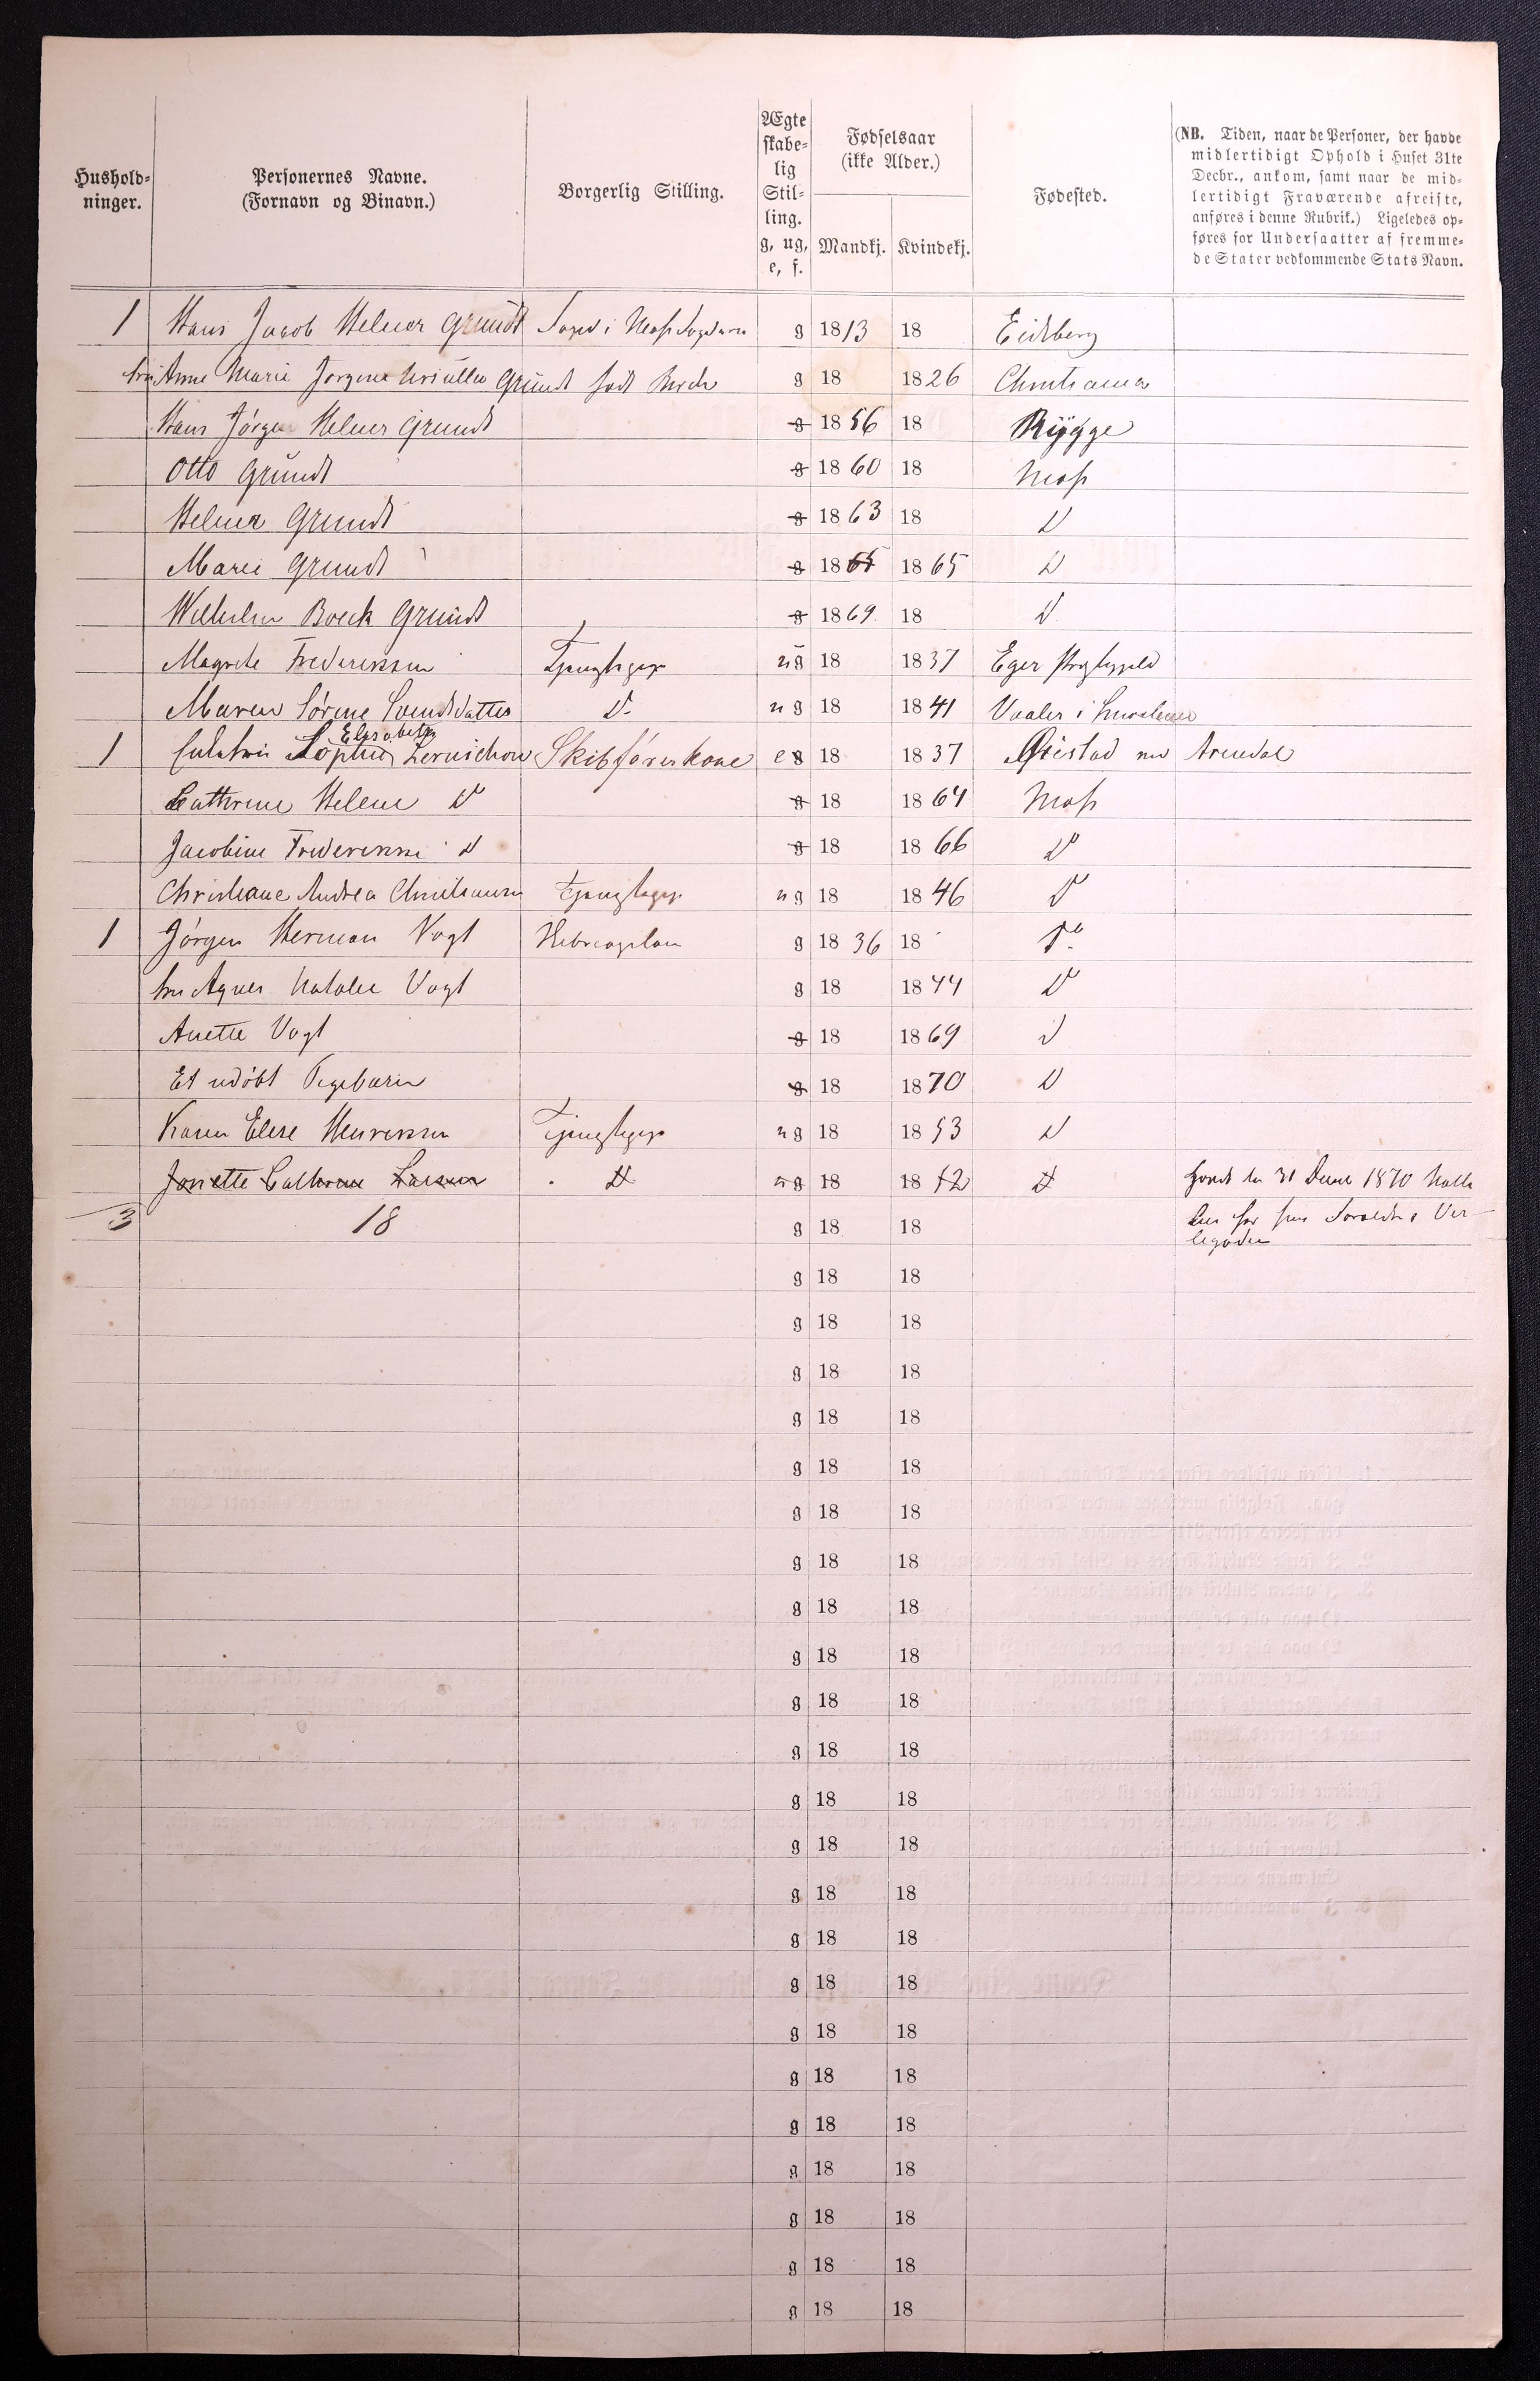 Hushold-
ninger.
Personernes Navne.
(Fornavn og Binavn.)
Borgerlig Stilling.
Ægte
skabe-
lig
Stil-
ling.
g, ug,
e, f.
Fødselsaar
(ikke Alder.)
Mandkj. Kvindekj.
Fødested.
(NB. Tiden, naar de Personer, der havde
midlertidigt Ophold i Huset 31te
Decbr., ankom, samt naar de mid-
lertidigt Fraværende afreiste,
anføres i denne Rubrik.) Ligeledes op-
føres for Undersaatter af fremme-
de Stater vedkommende Stats Navn.
1 Hans Jacob Helner Grundt Foged i Moss Fogderi g 1813 18 Eidsberg
Anne Marie Jørgine Grundt født g 18 1826 Christiania
Hans Jørgen Helner Grundt g 1856 18 Rygge
Otto Grundt g 1860 18 Moss
Helner Grundt g 1863 18 D
Marie Grundt g 1865 1865 D
Wilhelm Boeck Grundt g 1869 18 D
Magrete Frederiksen Tjenestepige ug 18 1837 Eger Præstegjeld
Maren Sørine Svendsdatter D ug 18 1841 Vaaler i Smaalenene
Elisabeth
1 Sophie Skibsførerkone eg 18 1837 Øiestad ved Arendal
Cathrine Helene D g 18 1864 Moss
Jacobine Frederikke D g 18 1866 D
Christiane Andrea Christiansen Tjenestepige ug 18 1846 D
1 Jørgen Herman Vogt g 1836 18 Do
Agnes Natalie Vogt g 18 1844 D
Anette Vogt g 18 1869 D
Et udøbt Pigebarn g 18 1870 D
Karen Elise Henriksen Tjenestepige ug 18 1853 D
Jonette Cathrine Larsen D ug 18 1852 D 31 1870
3 18 g 18 18
g 18 18
g 18 18
g 18 18
g 18 18
g 18 18
g 18 18
g 18 18
g 18 18
g 18 18
g 18 18
g 18 18
g 18 18
g 18 18
g 18 18
g 18 18
g 18 18
g 18 18
g 18 18
g 18 18
g 18 18
g 18 18
g 18 18
g 18 18